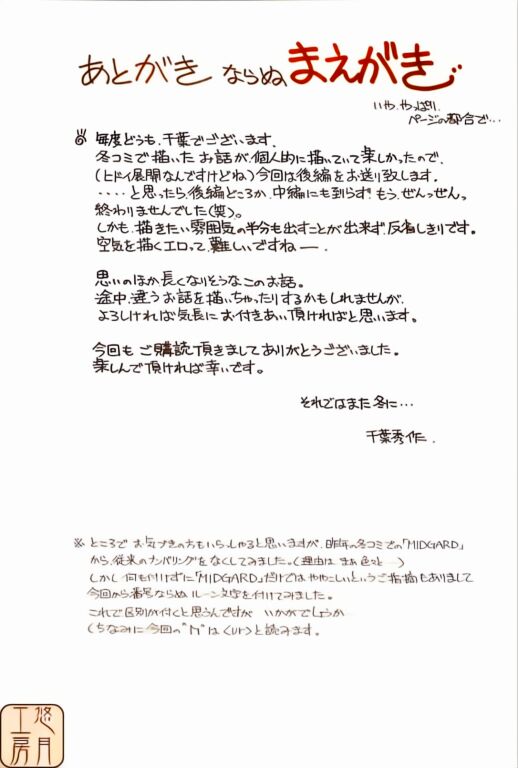 あとがき ならぬ まえがき
いや、やっぱり、
ページの都合で…
毎度どうも、千葉でございます。
冬コミで描いた お話が、個人的に描いていて楽しかったので、
(ヒドイ展開なんですけどね) 今回は後編をお送り致します。
・・・・と思ったら、後編どころか、中編にも到らず、もう、ぜんっぜんっ
終わりませんでした(笑)。
しかも、描きたい雰囲気の半分も出すことが出来ず、反省しきりです。
空気を描くエロって、難しいですねー。
思いのほか長くなりそうなこのお話。
途中、違うお話を描いちゃったりするかもしれませんが、
よろしければ気長にお付きあい頂ければと思います。
今回も ご購読頂きまして ありがとうございました。
楽しんで頂ければ幸いです。
それではまた冬に…
千葉秀作.
※ ところで お気づきの方もいらっしゃると思いますが、昨年の冬コミでの「MIDGARD」
から、従来のナンバリングをなくしてみました。(理由は まぁ 色々と──)
しかし 何も付けずに「MIDGARD」だけでは ややこしいというご指摘もありまして
今回から番号ならぬ ルーン文字を付けてみました。
これで区別が付くと思うんですが いかがでしょうか
(ちなみに今回の"ᚢ"は〈ur〉と読みます。
悠月工房